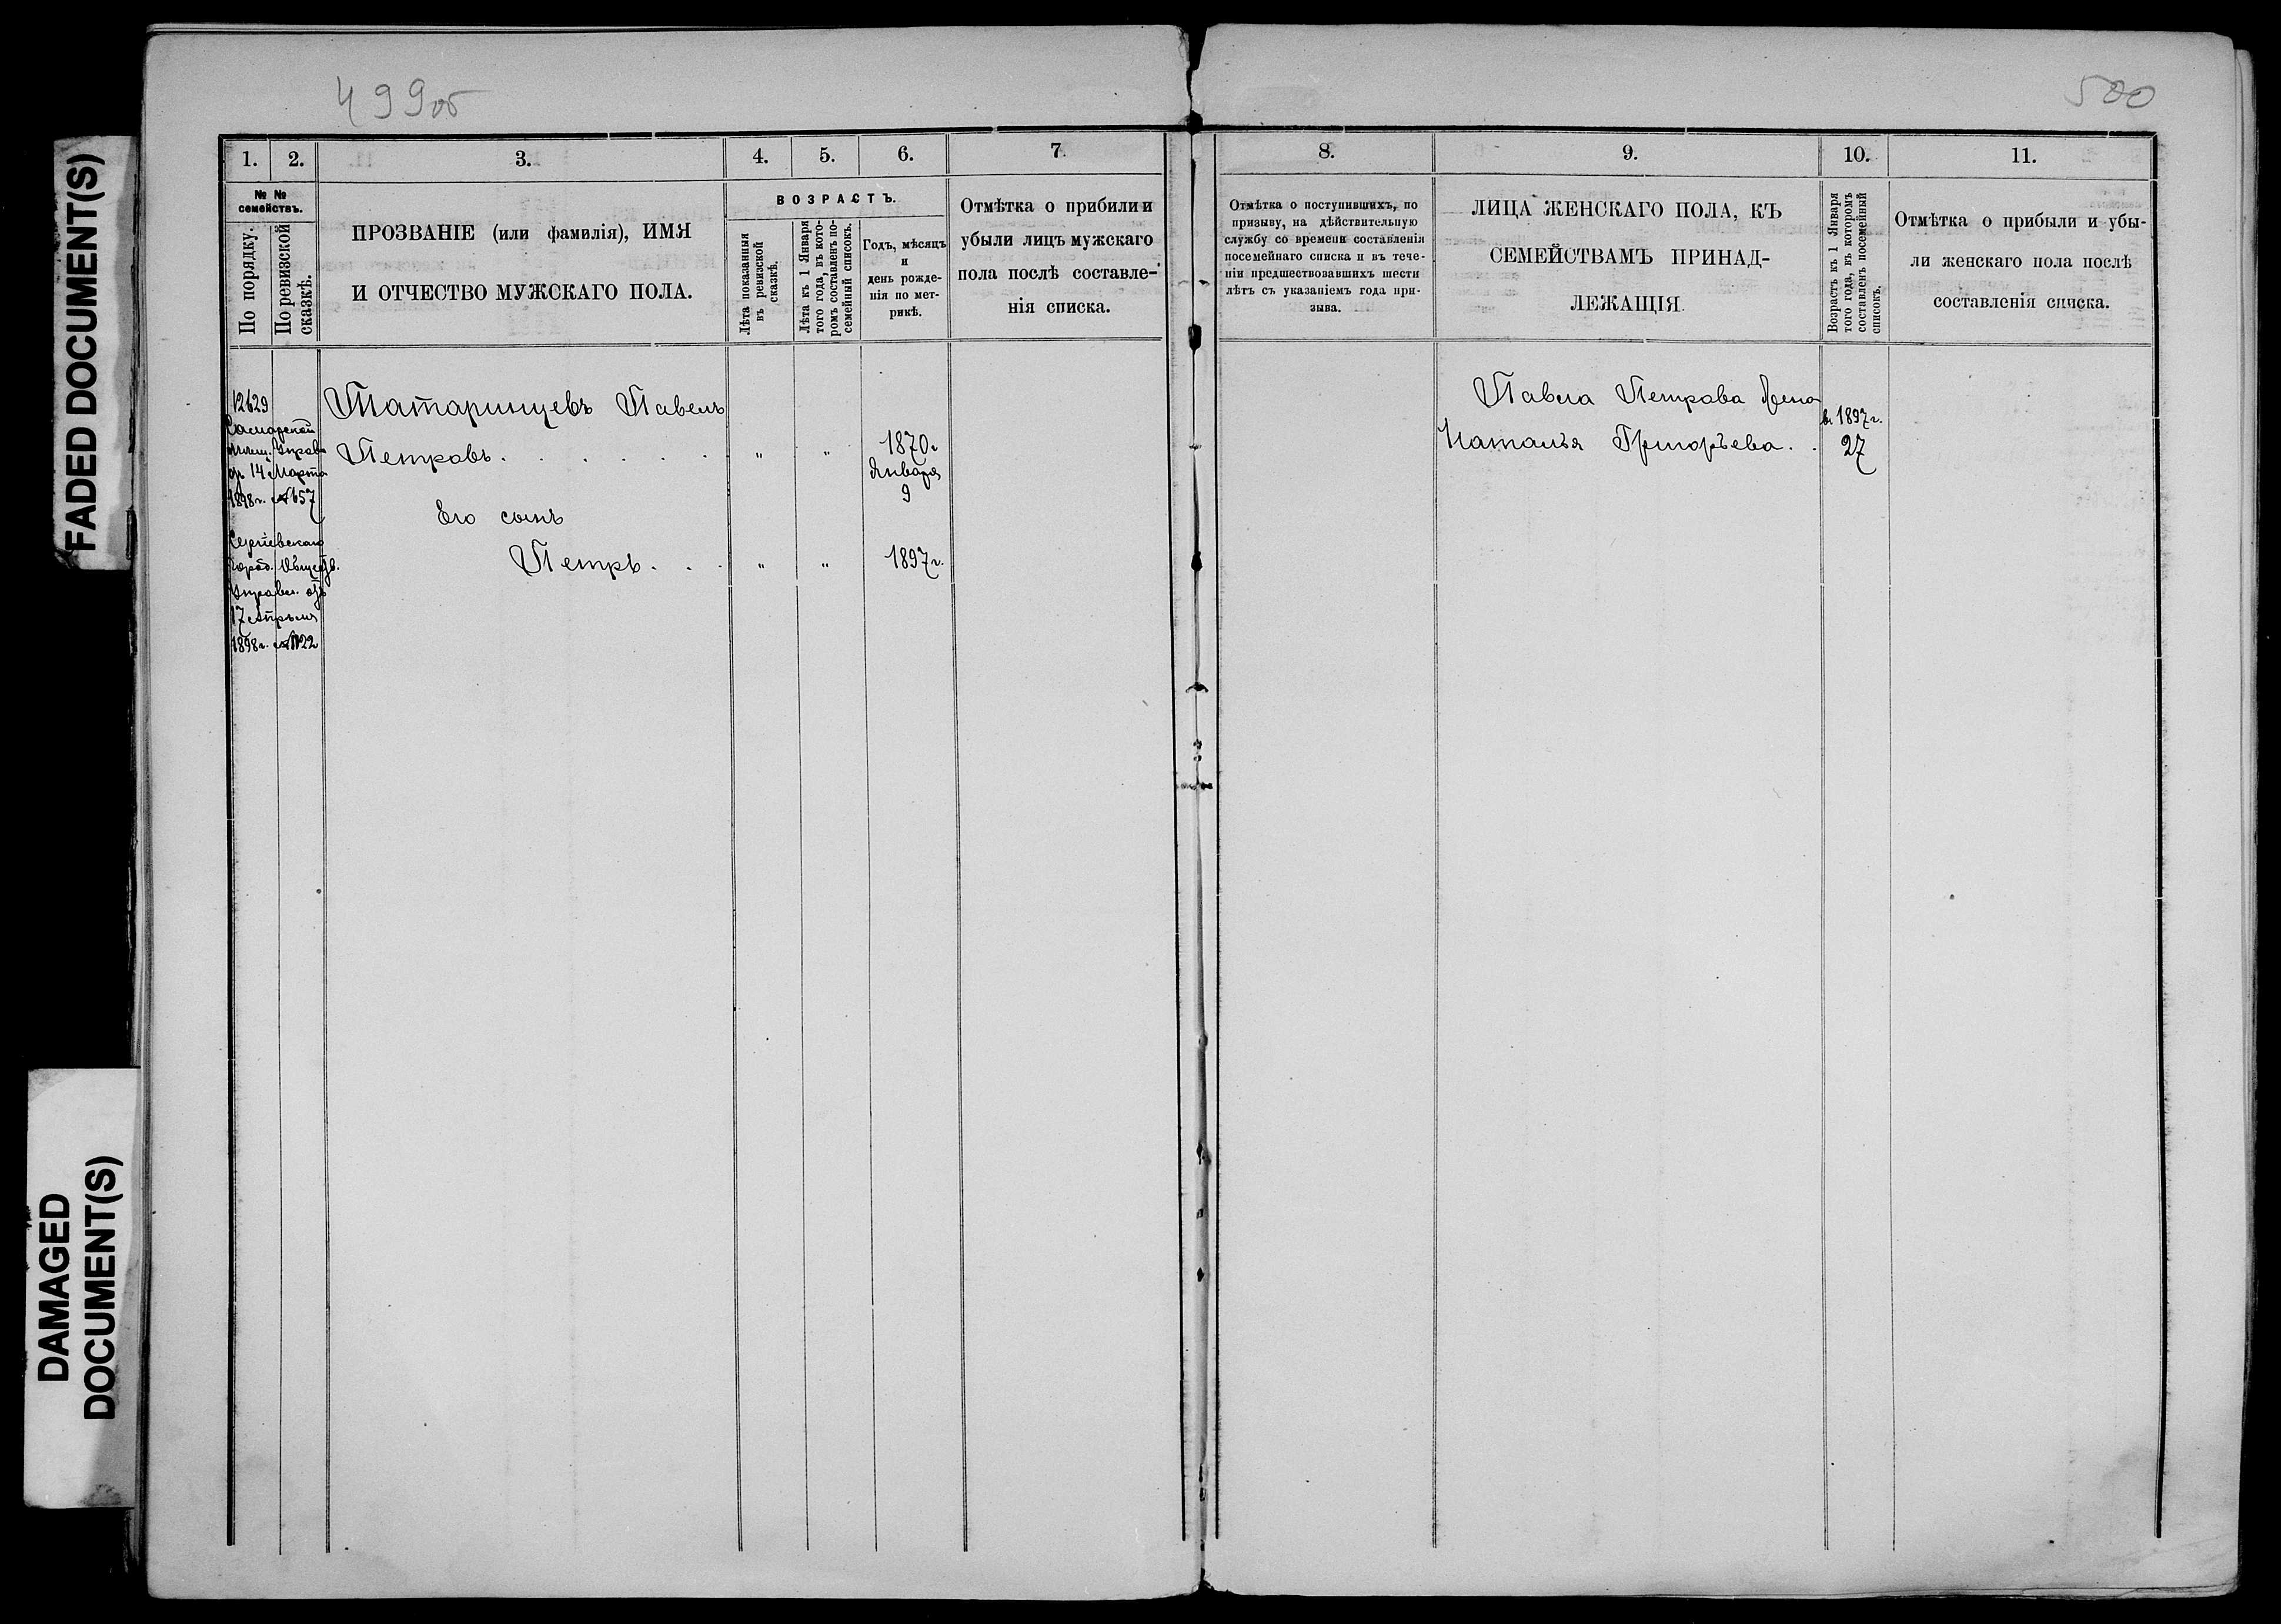 FADED DOCUMENT(S)
DAMAGED
DOCUMENT(S)
499об
1. 2. 3. 4. 5. 6. 7.
№ №
семействъ.
По порядку.
По ревизской
сказкѣ.
ПРОЗВАНІЕ (или фамилія), ИМЯ
И ОТЧЕСТВО МУЖСКАГО ПОЛА.
ВОЗРАСТЪ.
Лѣта показанныя
въ ревизской
сказкѣ.
Лѣта къ 1 Января
того года, въ кото-
ромъ составленъ по-
семейный списокъ.
Годъ, мѣсяцъ
и
день рожде-
нія по мет-
рикѣ.
Отмѣтка о прибыли и
убыли лицъ мужскаго
пола послѣ составле-
нія списка.
12629
Самарской
мѣщ. Управы
отъ 14 Марта
1898 г. № 657
Сергіевскаго
город. Обществ.
Управл. отъ
17 Апрѣля
1898 г. № 1122
Татаринцевъ Павелъ
Петровъ . . . . . . " " 1870 г
Января
9
Его сынъ
Петръ . . . " " 1897 г.
500
8. 9. 10. 11.
Отмѣтка о поступившихъ, по
призыву, на дѣйствительную
службу со времени составленія
посемейнаго списка и въ тече-
ніи предшествовавшихъ шести
лѣтъ съ указаніемъ года при-
зыва.
ЛИЦА ЖЕНСКАГО ПОЛА, КЪ
СЕМЕЙСТВАМЪ ПРИНАД-
ЛЕЖАЩІЯ.
Возрастъ къ 1 Января
того года, въ которомъ
составленъ посемейный
списокъ.
Отмѣтка о прибыли и убы-
ли женскаго пола послѣ
составленія списка.
Павла Петрова жена
в. 1897 г.
Наталья Григорьева. . 27